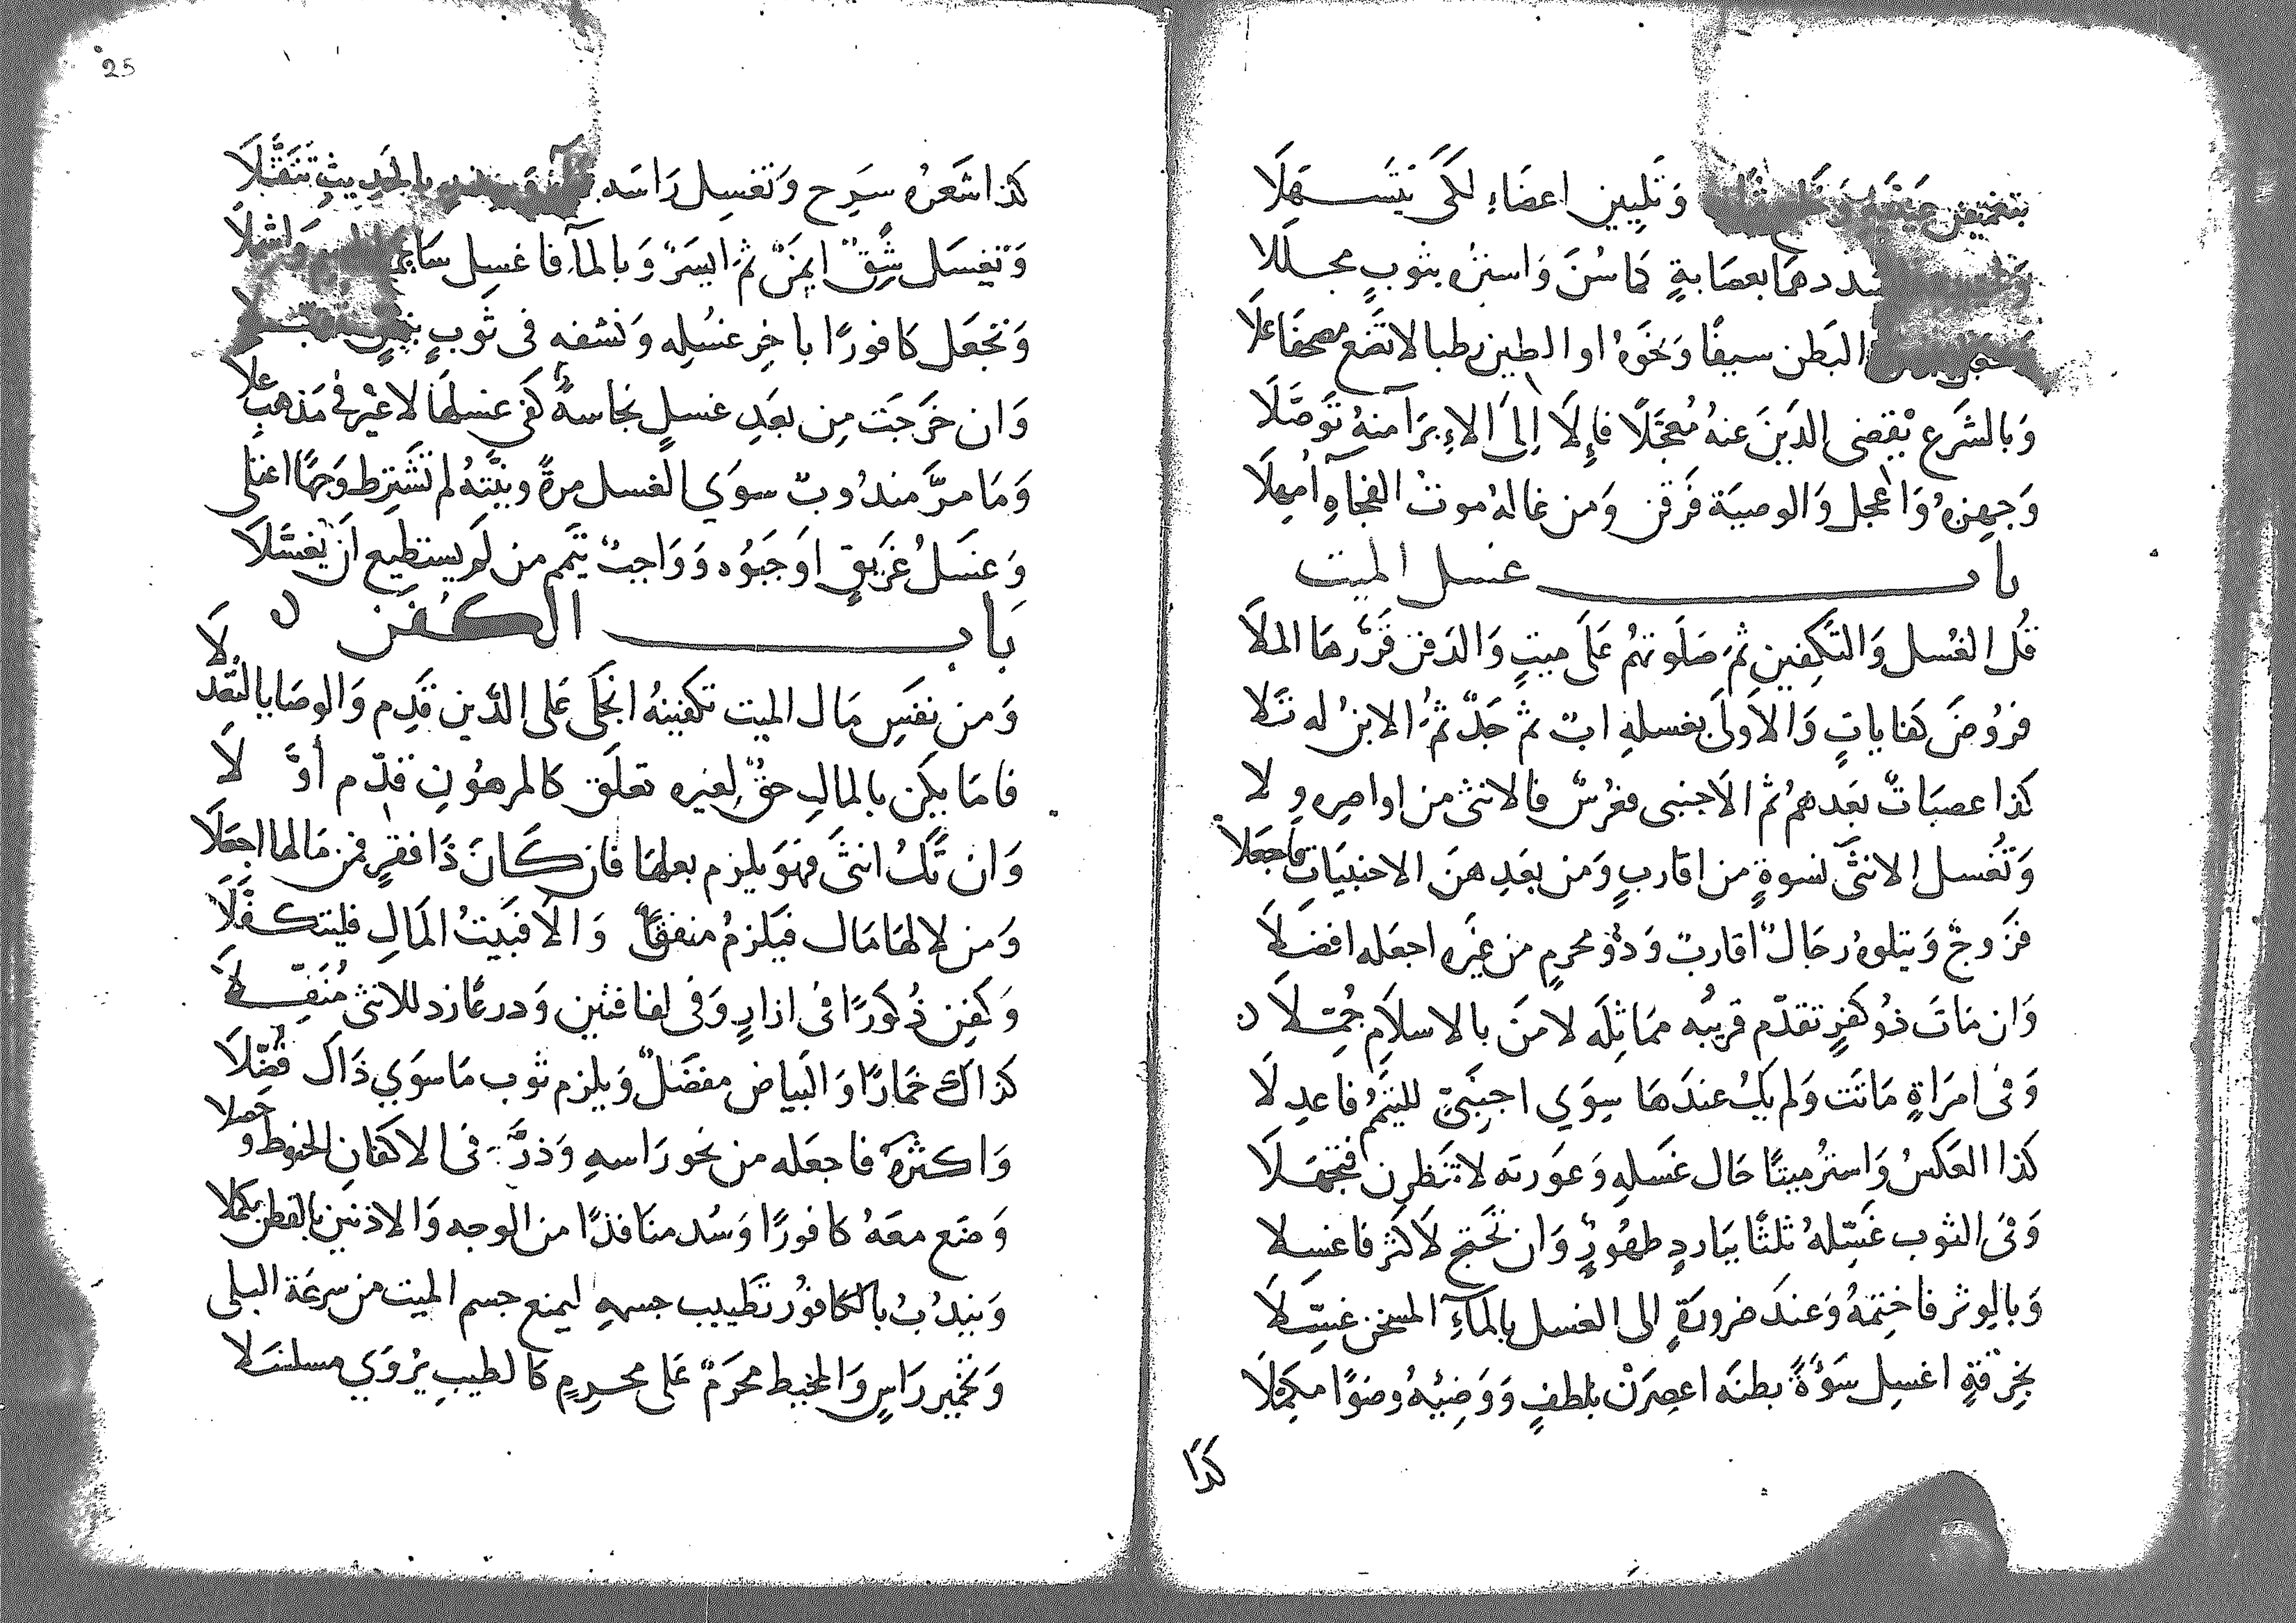 بتغميض عينيه وَتَليين اعضَاءٍ لكَى يَتَسَهلَا
شددهما بعصَابةٍ كما سُنَ وَاسترهُ بثوبٍ مجللا
البَطن سيفًا وَنحَوهُ او الطين رطبا لا تَضَع مصحفًا علَا
وَبالشَرع يَقضى الدَينَ عنهُ مُعجَّلًا فإِلَا اِلىَ الاءِبرَآ منهُ توَصَّلَا
وَجهزهُ وَاعجل وَالوصيَة فَرقن وَمن غاله موتُ الفجاةِ اُمهلَا
باب غسل الميت
قُل الغُسل وَالتَكفين ثم صَلَوتهُم عَلَى ميتٍ وَالدَفن قَرَّرهَا الملَا
فروُضَ كفاياتٍ وَالاَولىَ بغسلهِ ابٌ ثم جَدٌّ ثمُ الابنُ له تَلا
كذا عصبَاتٌ بَعَدهُم ثم الاَجنبى فعُرسٌ فالانثى من اواصره ولا
وَتُغسل الانثىَ نسوةٍ من اقاربٍ وَمن بعَدِهنَ الاجنبيَات فاجعَلا
فزَوجٌ وَيتلوهُ رجَالٌ اقاربٌ وَذو محرمٍ من غيَرهِ اجعَله افضلَا
وَان مَاتَ ذُو كفرٍ تقدّم قريبُه مماثِلَه لا منَ بالاسلَام جُمِّلَا
وَفى امرَاةٍ مَاتَت وَلم يَكُ عندَهَا سِوَي اجنَبىٍّ للتيمُّمُ فاعدِلَا
كذا العَكسُ وَاسترُ ميتًا حَال غسَلهِ وَعوَرته لا تنظرن فتجهَلَا
وَفىَ الثوب غَسِّلهُ ثلثًا ببَاردٍ طهُورٍ وَان تَحتَج لَاكثر فاغسلا
وَبالِوتر فاختمهُ وَعندَ ضرورَةٍ الى الغسل بالماَءِ المسخن غسِّلَا
بخِرقةٍ اغسِل سَوءَةً بطنَه اعصِرَنْ بلطفٍ وَوَضِّيهُ وضوًا مكمَّلَا
كذا
25
كذا شَعَرهُ سَرِح وَتغسِل رَاسَه بالحَديثِ تنَقُّلَا
وَتغسَل شِقٌ ايمَنٌ ثمَ ايسَرٌ وَبالمآ فاغسِل سَائر
وَتجعَل كافورًا باخِر غسُلِه وَنشفه فى ثوَبٍ
وَان خَرجَت مِن بعَدِ غسلٍ نجَاسةٌ كفىَ غسلهَا لا غيَر فى مَذهبِ علا
وَمَا مرَّ مندُوبٌ سوَي الغسل مرةً وَنيَّتهُ لم تُشتَرط وَجهًا اعتلى
وَغسَلُ غَريقٍ اوَجَبوُه وَوَاجبٌ تيَمم من لَو يستطيع ان يغَسَّلَا
باب الكفَن
وَمن نفسِ مَال الميت تكفينهُ انجَلىَ عَلى الدَّين قدِم وَالوصَايا لتَعَدلَا
فامَا يكَن بالمالِ حقٌ لغيره تعلَق كالمرهُونِ قدّم أوَّلَا
وَان تكُ انثىَ فهَو يلزم بعلهَا فان كَانَ ذَا فقرٍ فمن مَالها اجعَلَا
وَمن لا لهَا مَال فيَلزمُ منفقًا وَالا فبَيتُ المَالِ فليتكفَّلَا
وَكفِن ذُكورًا فى ازارٍ وَفى لفافتين وَدرعًا زد للانثى مُنَفِّلَا
كذاك خمَارًا وَالبَياض مفضَّلٌ وَيلزم ثوب مَا سوَي ذَاكَ فُضِّلَا
وَاكثرهُ فاجعَله من نحو رَاسهِ وَذرَّ فى الاكفانِ الحنوطَ وحَصلا
وَضَع معَهُ كافورًا وَسُد منَافذًا من الوجه وَالاذنين بالقطن يكملا
وَيندُبُ بالكافوُر تَطييب جسمهِ ليمنع جسم الميت من سرعَة البلى
وَتخمير رَاسٍ وَالمخيط محَرَمٌ عَلى محرمٍ كالطيبِ يرْوَي مسلسَلا